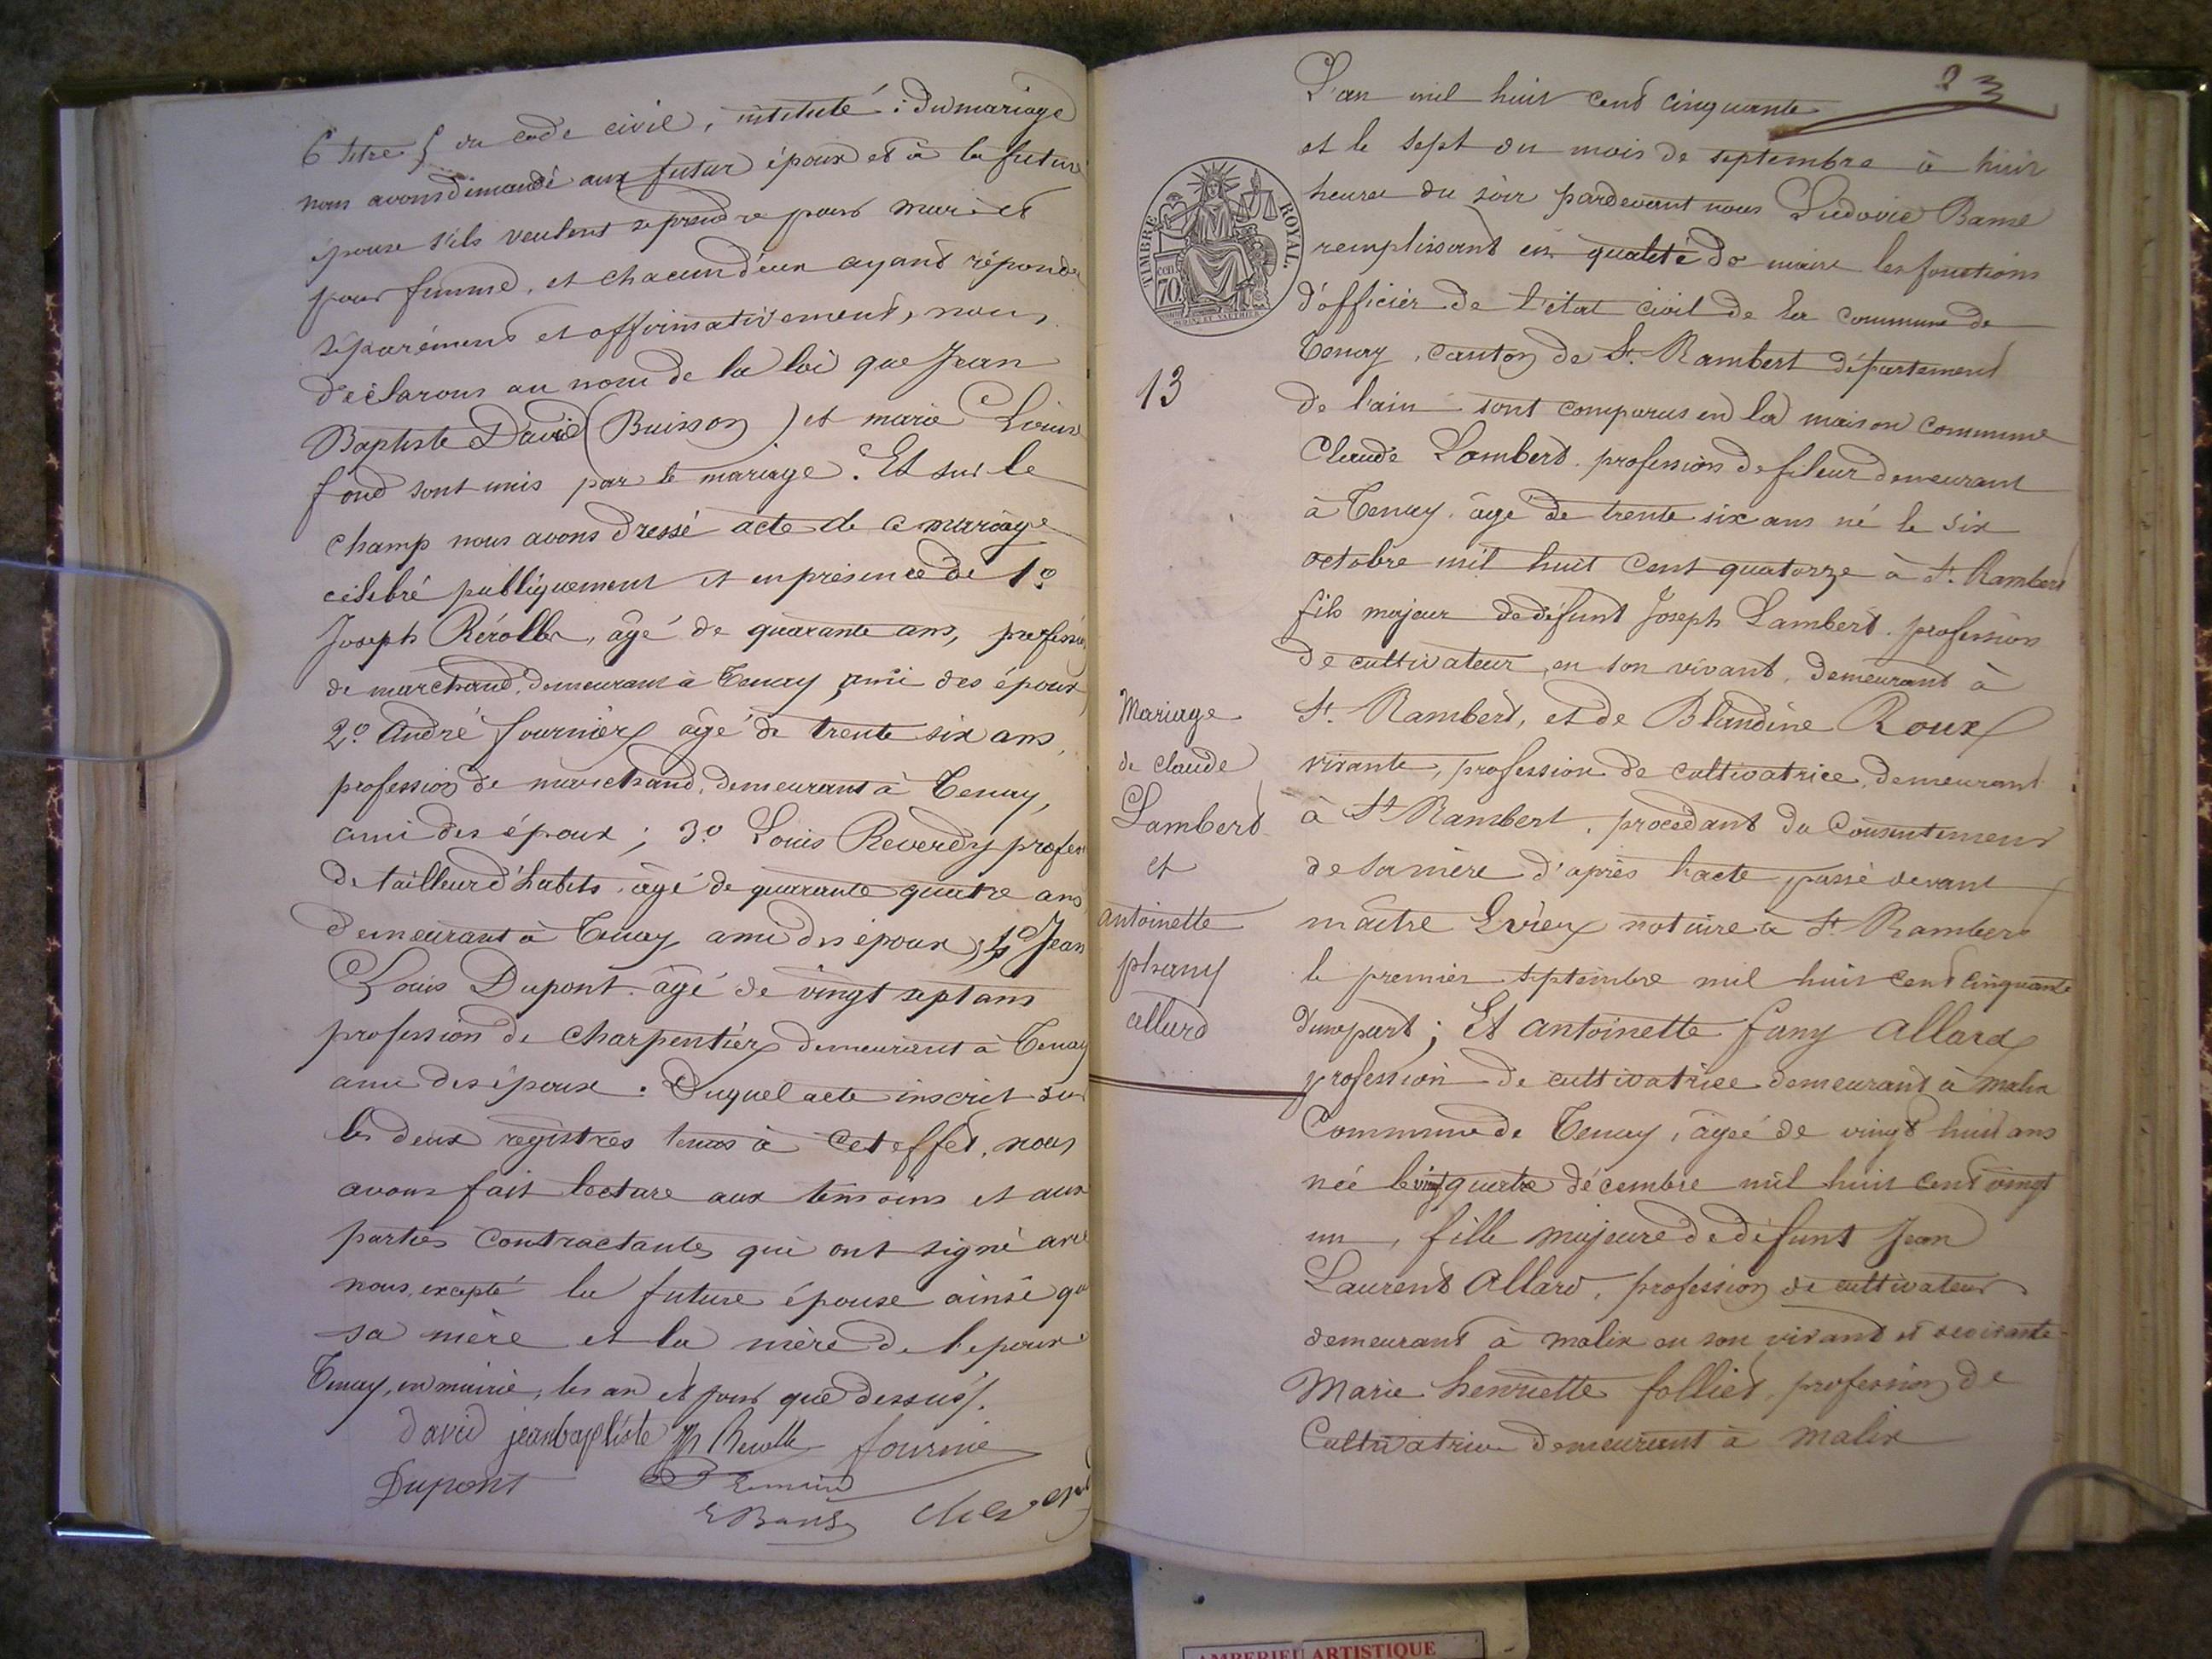 6 titre 5 du code civil, intitulé : Du mariage
nous avons demandé aux futur époux et à la future
épouse s'ils veulent se prendre pour mari et
pour femme, et chacun d'eux ayant répondu
séparément et affirmativement, nous
déclarons au nom de la loi que Jean
Baptiste David (Buisson) et marie Louise
fond sont unis par le mariage. Et sur le
champ nous avons dressé acte de ce mariage
célébré publiquement et en présence de 1º
Joseph Rérolle, âgé de quarante ans, profession
de marchand, demeurant à Tenay, ami des époux
2º André fournier âgé de trente six ans,
profession de marchand, demeurant à Tenay,
ami des époux ; 3º Louis Reverdy profes
de tailleur d'habits, âgé de quarante quatre ans
demeurant à Tenay ami des époux ; 4º Jean
Louis Dupont. âgé de vingt sept ans
profession de charpentier demeurant à Tenay
ami des époux. Duquel acte inscrit sur
les deux registres tenus à cet effet, nous
avons fait lecture aux témoins et aux
parties contractantes qui ont signé avec
nous, excepté la future épouse ainsi que
sa mère et la mère de l'époux
Tenay, en mairie, les an et jour que dessus.
david jeanbaptiste Rerolle fournie
Dupont
23
L'an mil huit cent cinquante
et le sept du mois de septembre à huit
heures du soir pardevant nous Ludovic Banse
remplissant en qualité de maire les fonctions
d'officier de l'état civil de la commune de
Tenay, canton de St. Rambert département
de l'ain sont comparus en la maison commune
Claude Lambert. profession de fileur demeurant
à Tenay. âgé de trente six ans né le six
octobre mil huit cent quatorze à St. Rambert
fils majeur de défunt Joseph Lambert. profession
de cultivateur, en son vivant, demeurant à
St. Rambert, et de Blandine Roux
vivante, profession de cultivatrice, demeurant
à St Rambert, procédant du consentement
de sa mère d'après l'acte passé devant
maître notaire à St Rambert
le premier septembre mil huit cent cinquante
d'une part ; Et antoinette fany allard
profession de cultivatrice demeurant à malix
Commune de Tenay, âgée de vingt huit ans
née le vingt quatre décembre mil huit cent vingt
un, fille majeure de défunt Jean
Laurent Allard, profession de cultivateur
demeurant à malix en son vivant et de vivante
Marie henriette folliet, profession de
Cultivatrice demeurant à malix
TIMBRE ROYAL.
cen 70.
13
Mariage
de claude
Lambert
et
antoinette
phany
allard
AMBERIEU ARTISTIQUE